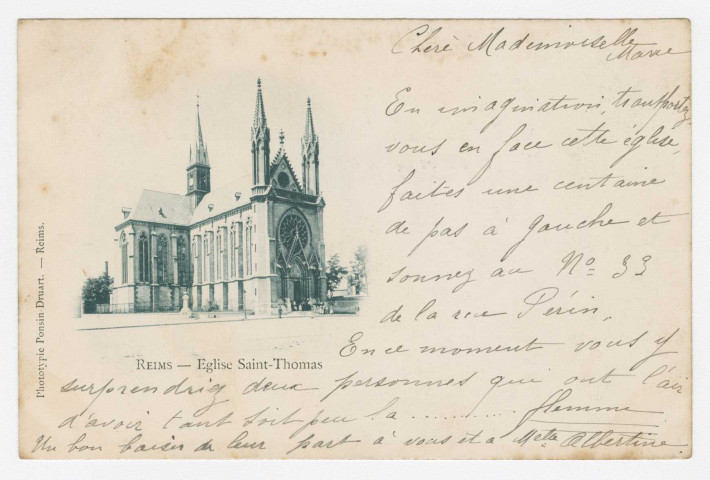 Chère Mademoiselle
Marie
En imagination, transportez
vous en face cette église,
faites une centaine
de pas à gauche et
sonnez au Nº 33
de la rue Périn,
En ce moment vous y
surprendriez deux personnes qui ont l'air
d'avoir tant soit peu la .......... flemme
Un bon baiser de leur part à vous et a Melle Albertine.
REIMS — Eglise Saint-Thomas
Phototypie Ponsin-Druart. — Reims.